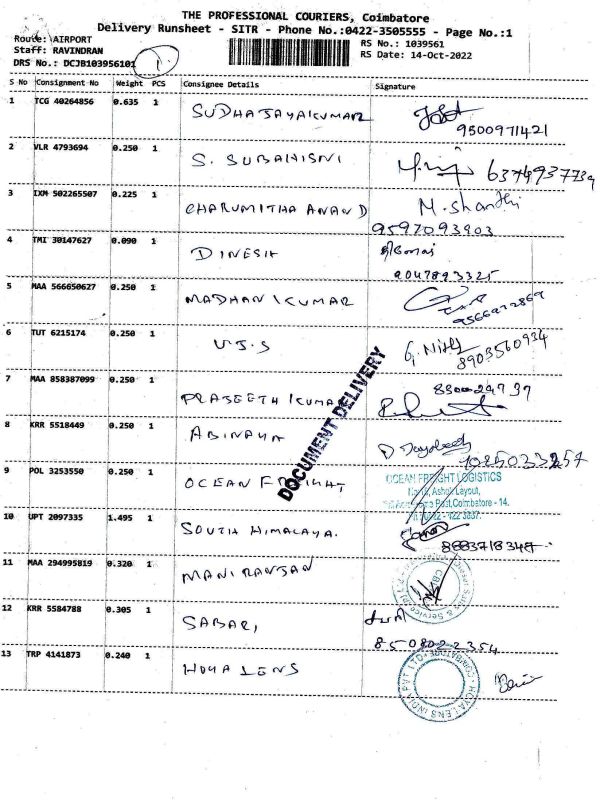 THE PROFESSIONAL COURIERS, Coimbatore
Delivery Runsheet - SITR - Phone No.:0422-3505555 - Page No.:1
Route: AIRPORT
Staff: RAVINDRAN
DRS No.: DCJB103956101
RS No.: 1039561
RS Date: 14-Oct-2022
S No Consignment No Weight PCS Consignee Details Signature
1 TCG 40264856 0.635 1 SUDHA JAYAKUMAR
9500971421
2 VLR 4793694 0.250 1 S. SUBAHISNI 6374937739
3 IXM 502265507 0.225 1 CHARUMITHA ANAND M. Shanthi
9597093903
4 TMI 30147627 0.090 1 DINESH
9047893325
5 MAA 566650627 0.250 1 MADHAN KUMAR
6 TUT 6215174 0.250 1 U.S.S
8903560934
7 MAA 858387099 0.250 1 PRAJEETH KUMAR
8 KRR 5518449 0.250 1 ABINAYA
DOCUMENT DELIVERY
9 POL 3253550 0.250 1 OCEAN FREIGHT
OCEAN FREIGHT LOGISTICS
Layout,
Post, Coimbatore - 14.
10 UPT 2097335 1.495 1 SOUTH HIMALAYA.
11 MAA 294995819 0.320 1 MANIRANJAN
12 KRR 5584788 0.305 1 SABARI
8508022354
13 TRP 4141873 0.240 1 HOYA LENS
HOYA LENS INDIA PVT LTD COIMBATORE